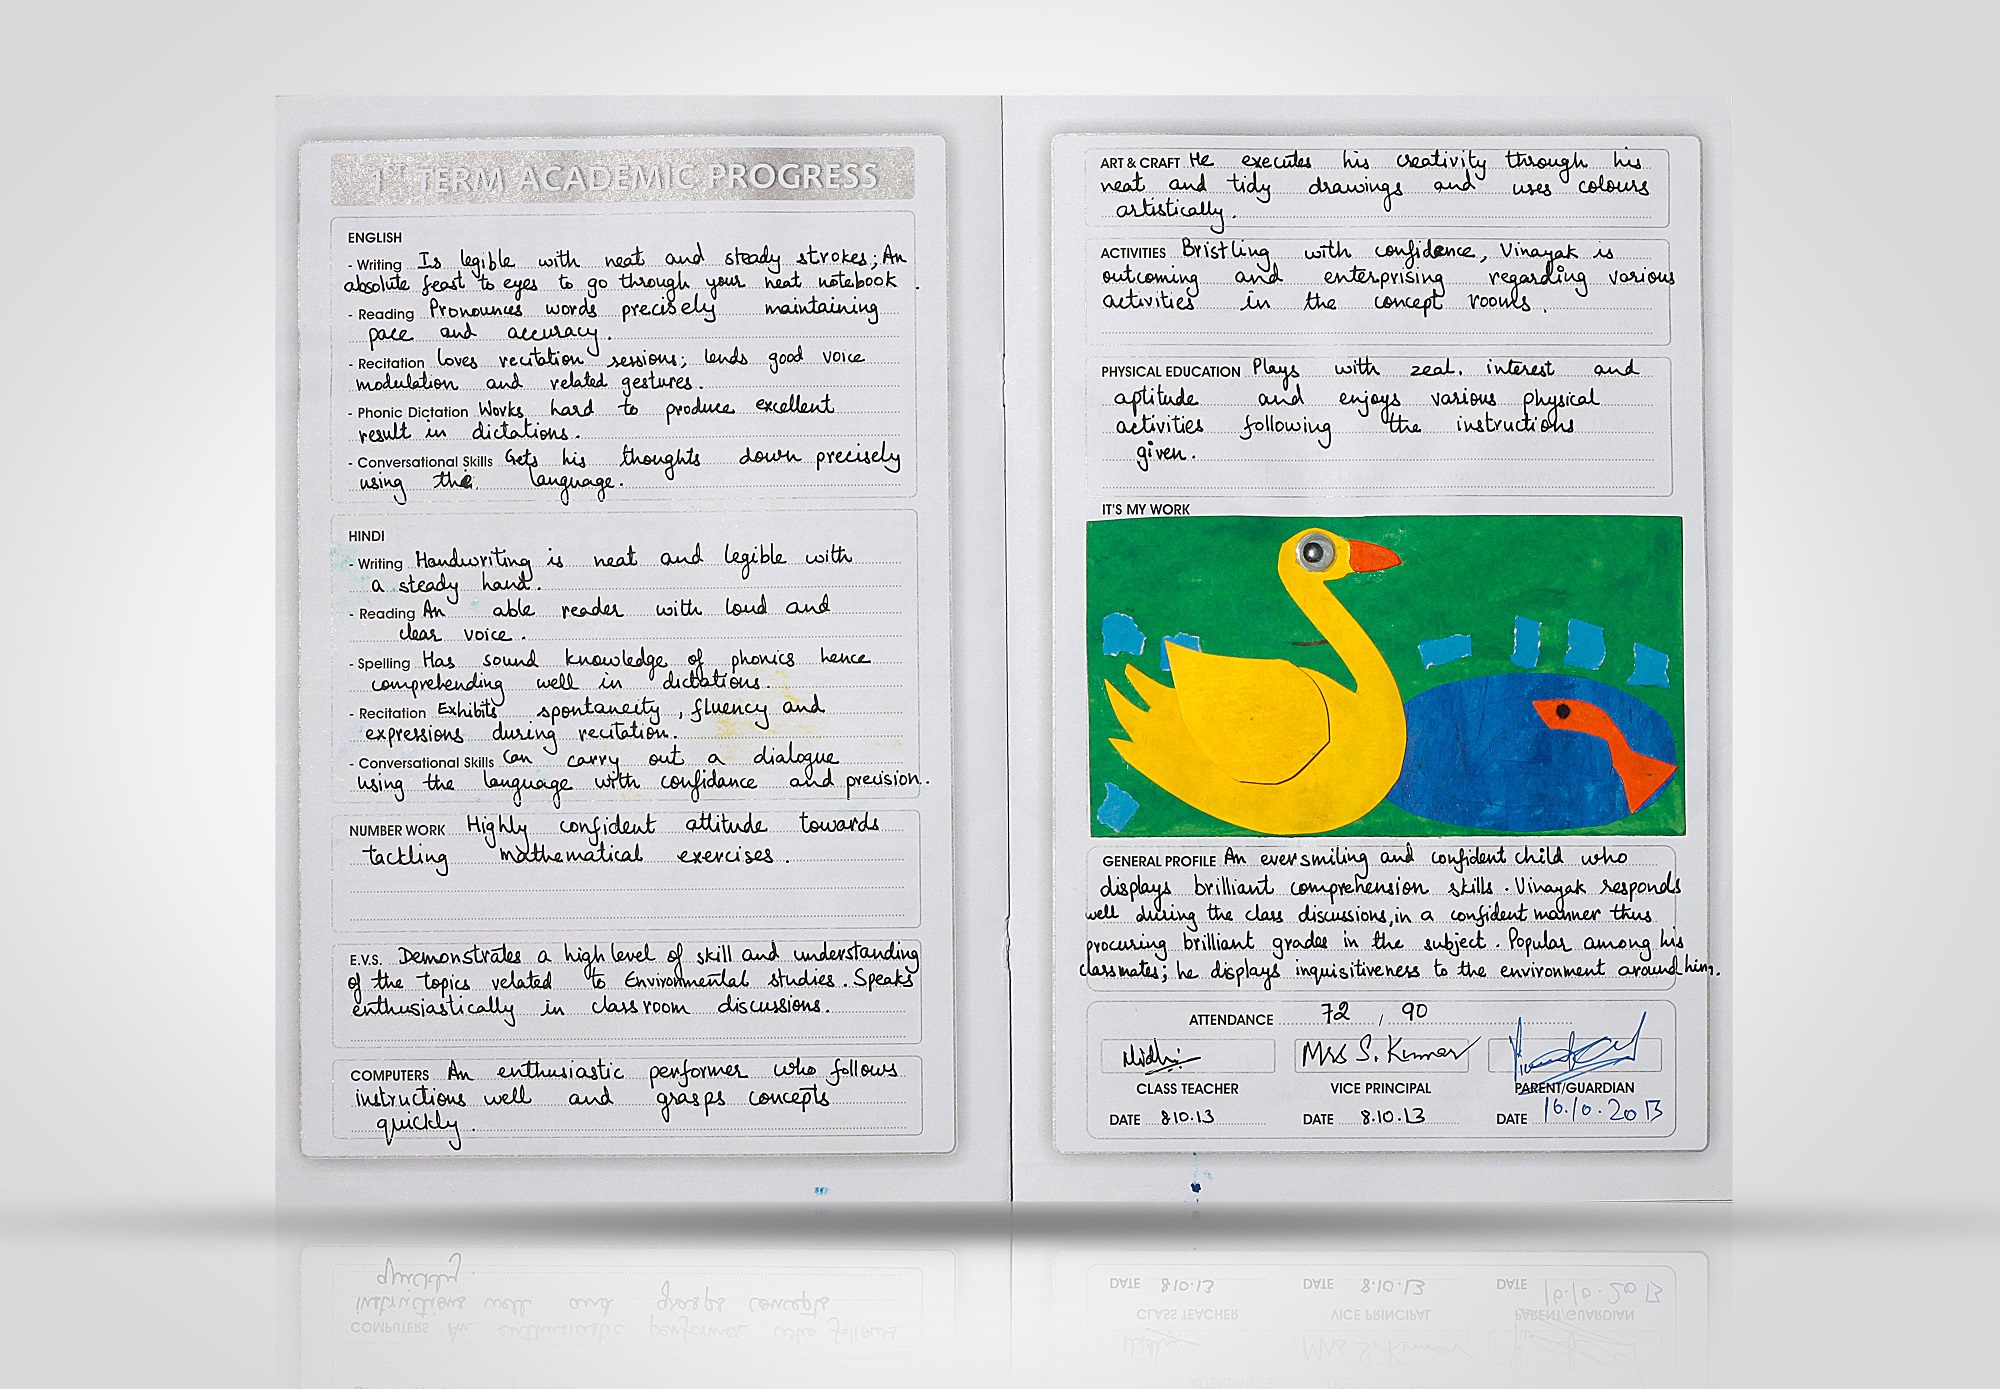 1ST TERM ACADEMIC PROGRESS
ENGLISH
- Writing Is legible with neat and steady strokes; An
absolute feast to eyes to go through your neat notebook.
- Reading Pronounces words precisely maintaining
pace and accuracy.
- Recitation loves recitation sessions; lends good voice
modulation and related gestures.
- Phonic Dictation Works hard to produce excellent
result in dictations.
- Conversational Skills Gets his thoughts down precisely
using the language.
HINDI
- Writing Handwriting is neat and legible with
a steady hand.
- Reading An able reader with loud and
clear voice.
- Spelling Has sound knowledge of phonics hence
comprehending well in dictations.
- Recitation Exhibits spontaneity, fluency and
expressions during recitation.
- Conversational Skills Can carry out a dialogue
using the language with confidance and precision.
NUMBER WORK Highly confident attitude towards
tackling mathematical exercises.
E.V.S. Demonstrates a high level of skill and understanding
of the topics related to Environmental studies. Speaks
enthusiastically in class room discussions.
COMPUTERS An enthusiastic performer who follows
instructions well and grasps concepts
quickly.
ART & CRAFT He executes his creativity through his
neat and tidy drawings and uses colours
artistically.
ACTIVITIES Bristling with confidence, Vinayak is
outcoming and enterprising regarding various
activities in the concept rooms.
PHYSICAL EDUCATION Plays with zeal, interest and
aptitude and enjoys various physical
activities following the instructions
given.
IT'S MY WORK
GENERAL PROFILE An ever smiling and confident child who
displays brilliant comprehension skills. Vinayak responds
well during the class discussions, in a confident manner thus
procuring brilliant grades in the subject. Popular among his
classmates; he displays inquisitiveness to the environment around him.
ATTENDANCE 72 / 90
Nidhi Mrs S. Kumar
CLASS TEACHER VICE PRINCIPAL PARENT/GUARDIAN
DATE 8.10.13 DATE 8.10.13 DATE 16.10.2013